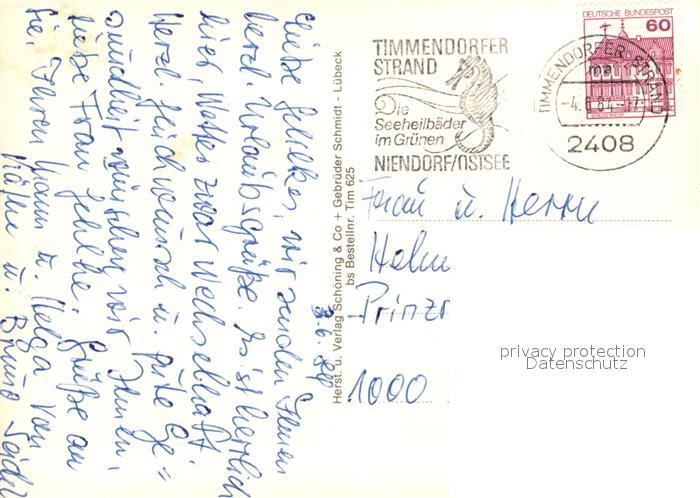 Liebe Gehlkes, wir senden Ihnen
herzl. Urlaubsgrüße. Es ist herrlich
hier, Wetter zwar wechselhaft.
Herzl. Glückwunsch u. gute Ge=
sundheit wünschen wir Ihnen,
liebe Frau Gehlke. Grüße an
Sie, Ihren Mann u. Helga von
Käthe u. Bruno
3.6.84
Herst. u. Verlag Schöning & Co + Gebrüder Schmidt - Lübeck
bs Bestellnr. Tim 625
TIMMENDORFER
STRAND
Die
Seeheilbäder
im Grünen
NIENDORF/OSTSEE
TIMMENDORFER STRAND
2408
DEUTSCHE BUNDESPOST
60
Frau u. Herrn
Helm
Prinz
1000
privacy protection
Datenschutz